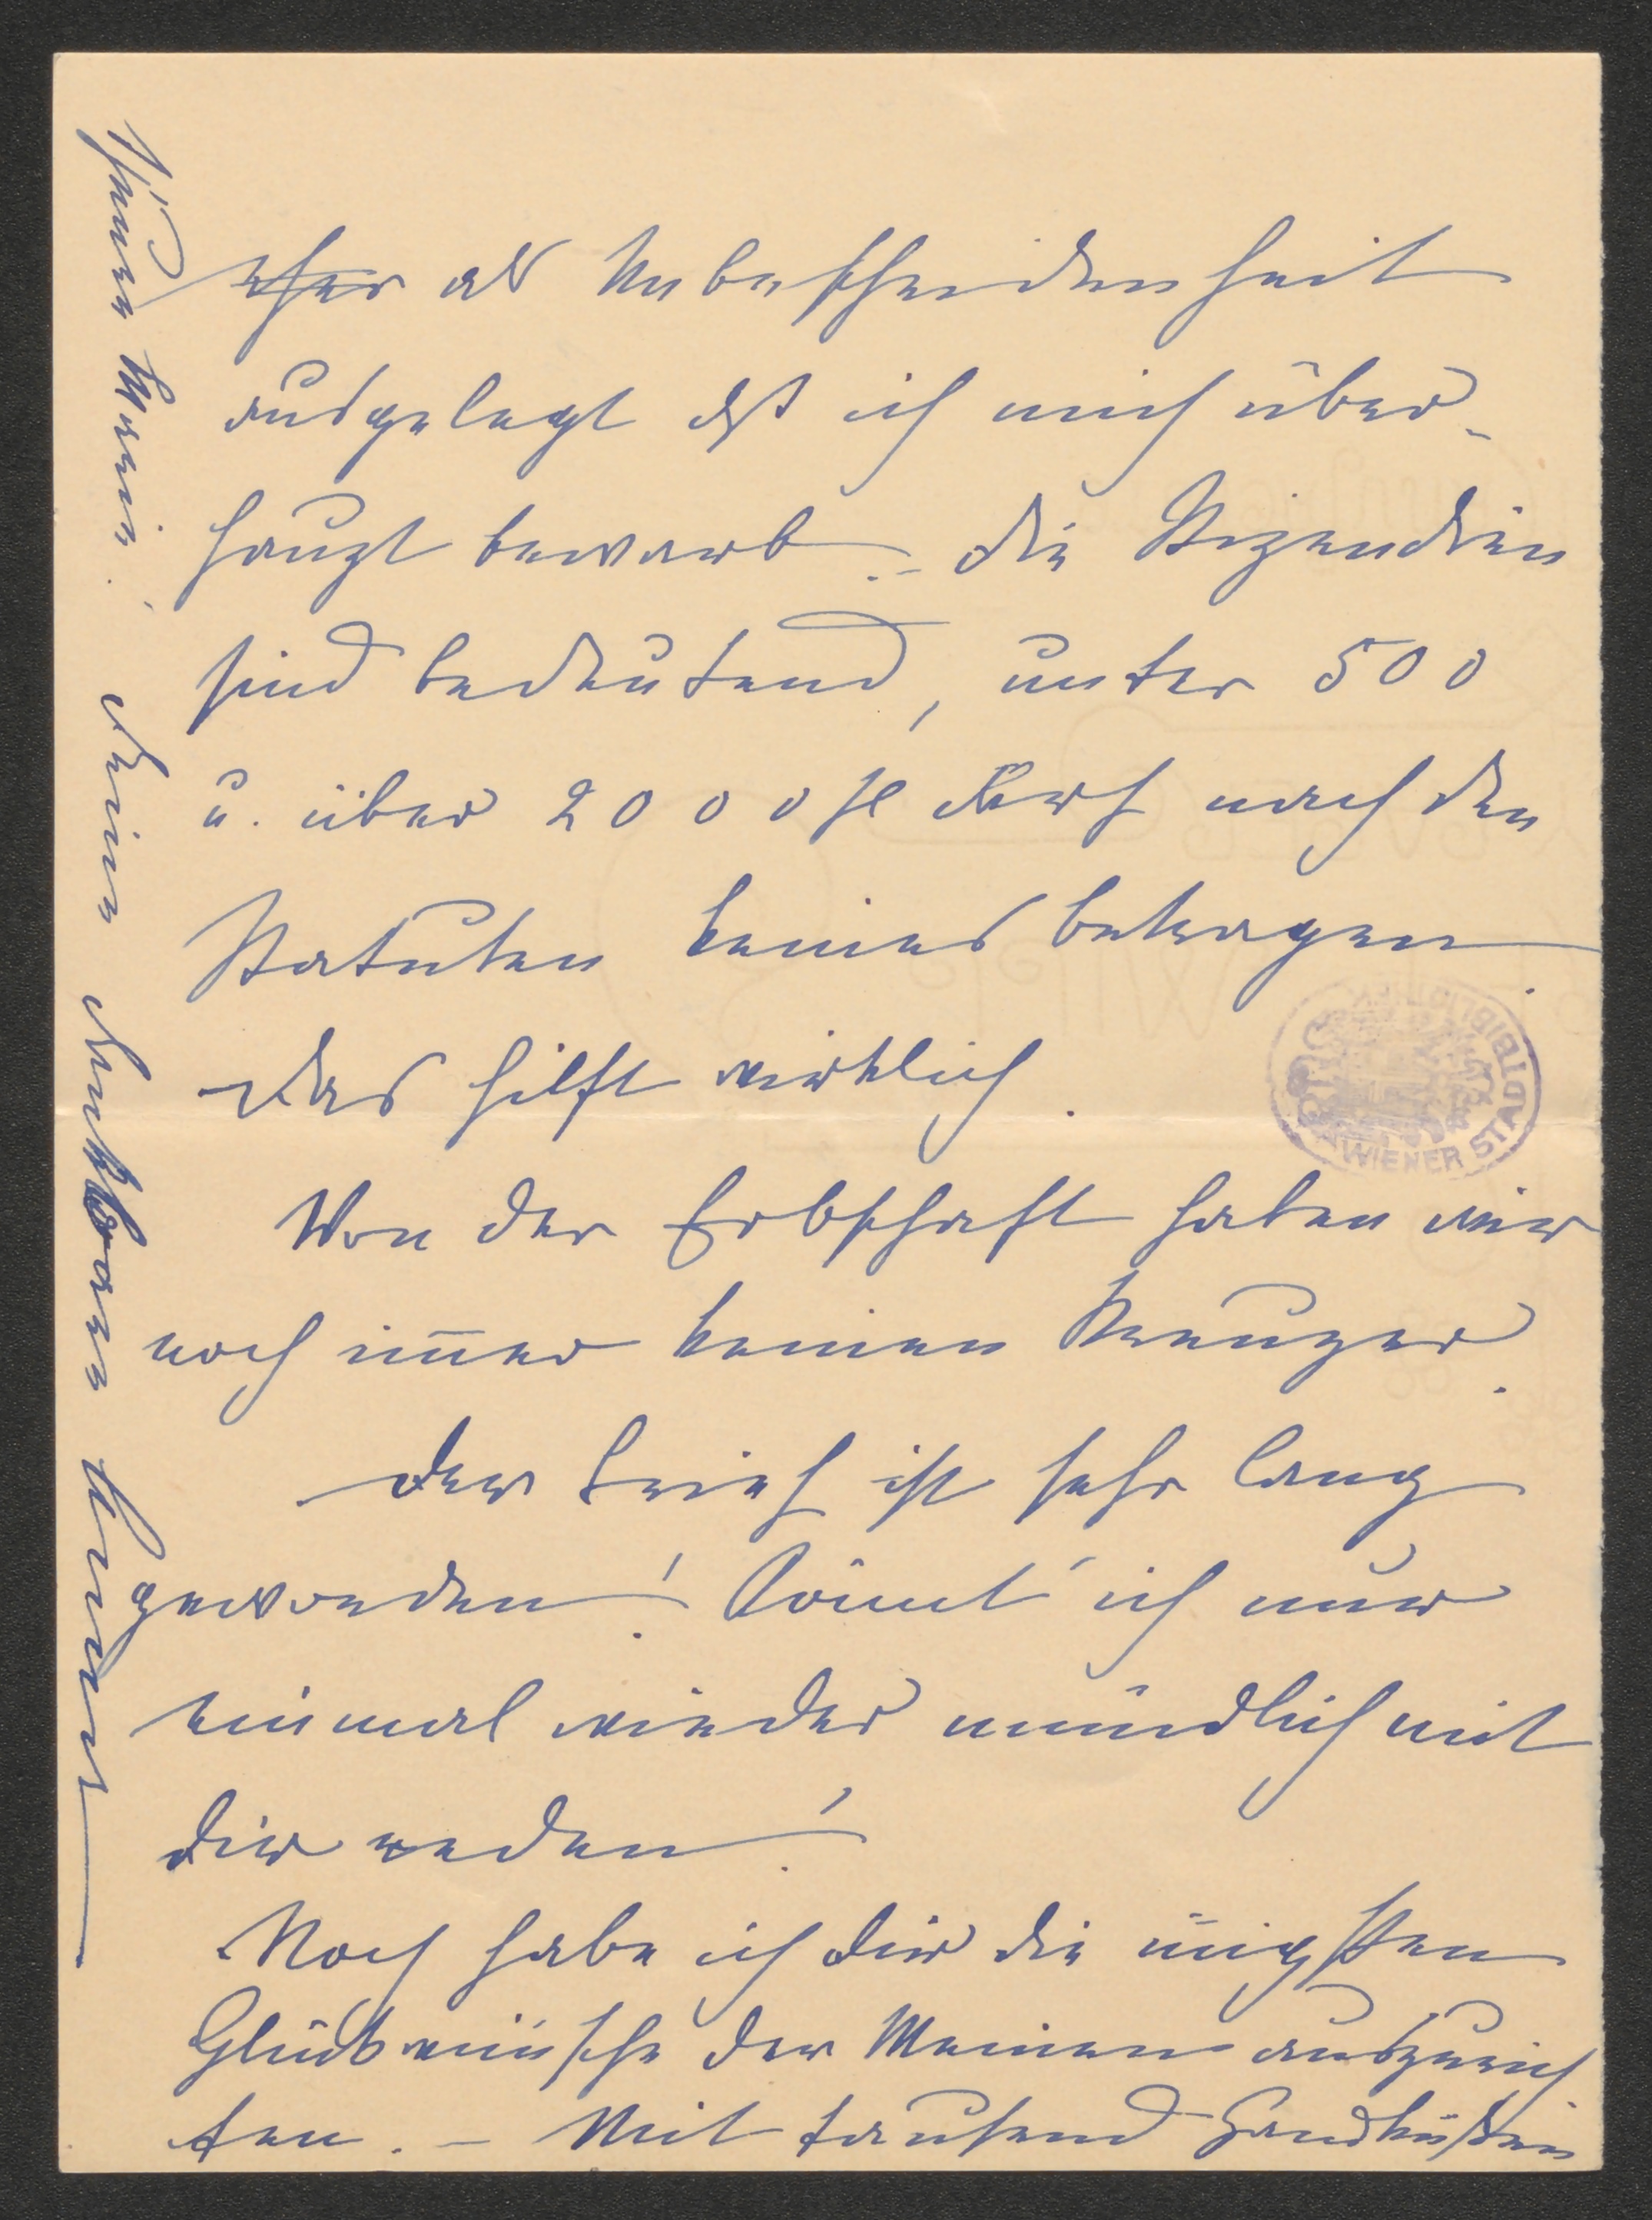 eher als Unbescheidenheit
ausgelegt dß ich mich über-
haupt bewarb. – Die Stipendien
sind bedeutend, unter 500
u. über 2000 fl darf nach den
Statuten keines betragen.
Das hilft wirklich.
Von der Erbschaft haben wir
noch im̅er keinen Kreuzer.
Der Brief ist sehr lang
geworden! Könnt' ich nur
einmal wieder mündlich mit
Dir reden!
Noch habe ich Dir die in̅igsten
Glückwünsche der Meinen auszurich
ten. – Mit tausend Handküssen
Deine dankbare
WIENER STADTBIBLIOTHEK